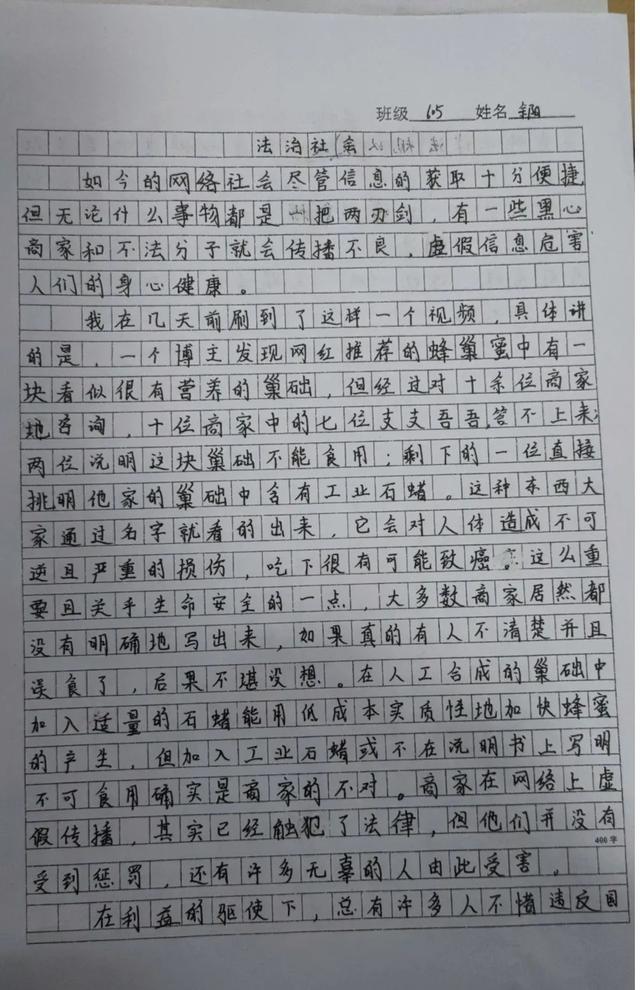 班级 105 姓名
法治社会
如今的网络社会尽管信息的获取十分便捷,
但无论什么事物都是一把两刃剑，有一些黑心
商家和不法分子就会传播不良，虚假信息危害
人们的身心健康。
我在几天前刷到了这样一个视频，具体讲
的是，一个博主发现网红推荐的蜂巢蜜中有一
块看似很有营养的巢础，但经过对十余位商家
地咨询，十位商家中的七位支支吾吾,答不上来;
两位说明这块巢础不能食用；剩下的一位直接
挑明他家的巢础中含有工业石蜡。这种东西大
家通过名字就看的出来，它会对人体造成不可
逆且严重的损伤，吃下很有可能致癌。这么重
要且关乎生命安全的一点，大多数商家居然都
没有明确地写出来，如果真的有人不清楚并且
误食了，后果不堪设想。在人工合成的巢础中
加入适量的石蜡能用低成本实质性地加快蜂蜜
的产生，但加入工业石蜡或不在说明书上写明
不可食用确实是商家的不对。商家在网络上虚
假传播，其实已经触犯了法律，但他们并没有
400字
受到惩罚，还有许多无辜的人由此受害。
在利益的驱使下，总有许多人不惜违反国